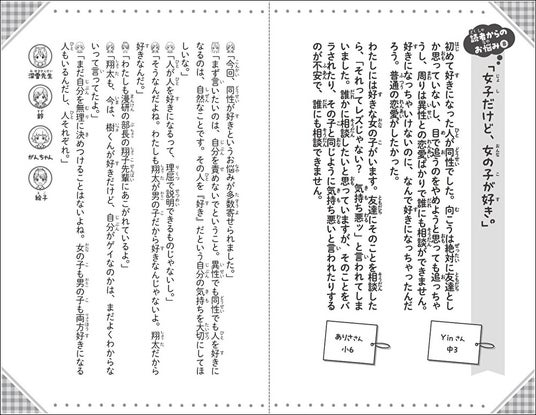 読者からのお悩み
「女子だけど、女の子が好き。」
初めて好きになった人が同性でした。向こうは絶対に友達とし
か思っていないし、目で追うのをやめようと思っても追っちゃ
うし、周りは異性との恋愛ばかりで誰にも相談ができません。
好きになっちゃいけないのに、なんで好きになっちゃったんだ
ろう。普通の恋愛がしたかった。
Yinさん
中3
わたしには好きな女の子がいます。友達にそのことを相談した
ら、「それってレズじゃない？ 気持ち悪ッ」と言われてしま
いました。誰かに相談したいと思っていますが、そのことをバ
ラされたり、その子と同じように気持ち悪いと言われたりする
のが不安で、誰にも相談できません。
ありささん
小6
「今回、同性が好きというお悩みが多数寄せられました。」
「まず言いたいのは、自分を責めないでということ。異性でも同性でも人を好きに
なるのは、自然なことです。その人を「好き」だという自分の気持ちを大切にしてほ
しいな。」
「人が人を好きになるって、理屈で説明できるものじゃないし。」
「そうなんだよね。わたしも翔太が男の子だから好きなんじゃないよ。翔太だから
好きなんだ。」
「わたしも漫研の部長の翔子先輩にあこがれているよ。」
「翔太も、今は、樹くんが好きだけど、自分がゲイなのかは、まだよくわからな
いって言ってたよ。」
「まだ自分を無理に決めつけることはないよね。女の子も男の子も両方好きになる
人もいるんだし、人それぞれ。」
先生
鈴
がんちゃん
絵子